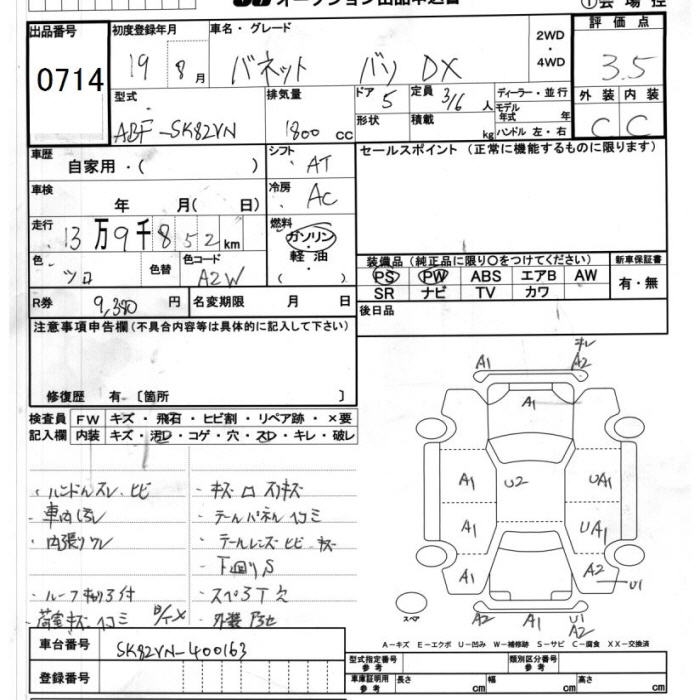 オークション出品申込書
①会場控
出品番号
0714
初度登録年月
19 8月
車名・グレード
バネット バン DX
2WD
・
4WD
評価点
3.5
型式
ABF-SK82VN
排気量
1800 cc
ドア
5
形状
定員
3/6 人
積載
kg
ディーラー・並行
モデル年式 年
ハンドル 左・右
外装 内装
C C
車歴
自家用・( )
シフト
AT
セールスポイント (正常に機能するものに限ります)
車検
年 月( 日)
冷房
AC
走行
13万9千852km
燃料
ガソリン
軽油
( )
色
シロ
色替
色コード
A2W
装備品(純正品に限り○をつけてください)
PS PW ABS エアB AW
SR ナビ TV カワ
新車保証書
有・無
R券 9,380円
名変期限 月 日
後日品
注意事項申告欄(不具合内容等は具体的に記入して下さい)
修復歴 有 [箇所 ]
検査員記入欄
FW キズ・飛石・ヒビ割・リペア跡・×要
内装 キズ・汚D・コゲ・穴・スD・キレ・破レ
・ハンドルスレ・ヒビ
・キズ
・テールパネルヘコミ
・テールレンズヒビ キズ
・下回りS
・荷室キズ ヘコミ
キレ
A1 A2
A1
A1 U2 UA1
A1 UA1
A1 A2 U1
スペア
A2 A1 U1
A2
A-キズ E-エクボ U-凹み W-補修跡 S-サビ C-腐食 XX-交換済
車台番号
SK82VN-400163
登録番号
型式指定番号 参考
類別区分番号 参考
車庫証明用 参考
長さ cm 幅 cm 高さ cm